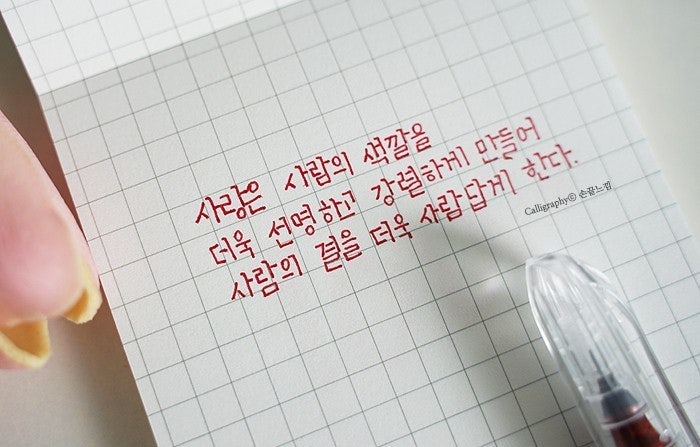 사랑은 사람의 색깔을
더욱 선명하고 강렬하게 만들어
사람의 결을 더욱 사람답게 한다.
Calligraphy© 손끝느낌